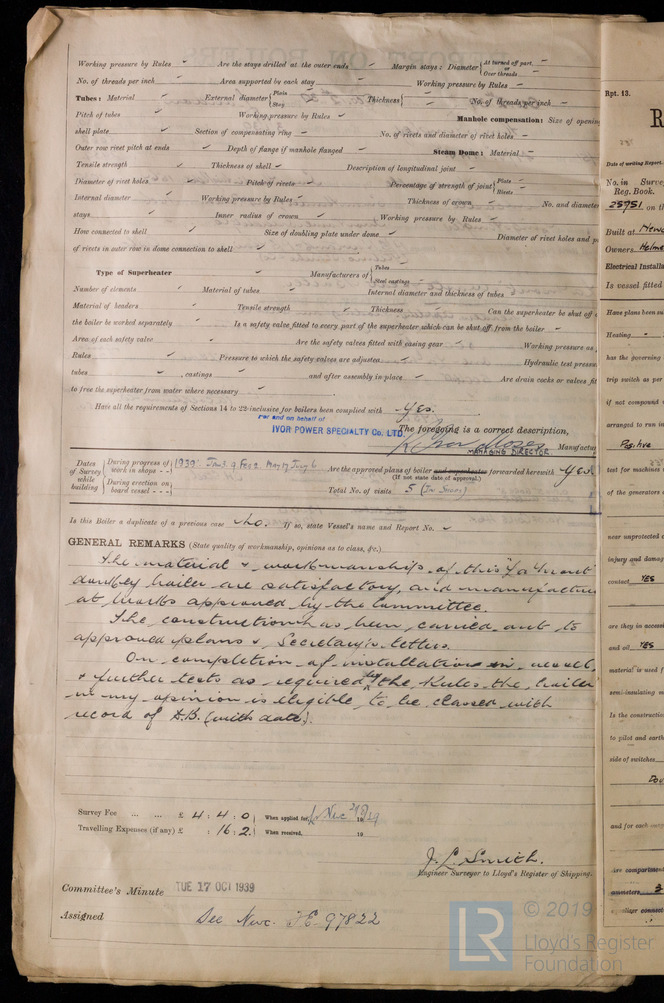 Working pressure by Rules ✓ Are the stays drilled at the outer ends ✓ Margin stays: Diameter { At turned off part, or Over threads
No. of threads per inch Area supported by each stay Working pressure by Rules
Tubes: Material External diameter { Plain Stay Thickness { No. of threads per inch
Pitch of tubes Working pressure by Rules Manhole compensation: Size of opening
shell plate Section of compensating ring No. of rivets and diameter of rivet holes
Outer row rivet pitch at ends Depth of flange if manhole flanged Steam Dome: Material
Tensile strength Thickness of shell Description of longitudinal joint
Diameter of rivet holes Pitch of rivets Percentage of strength of joint { Plate Rivets
Internal diameter Working pressure by Rules Thickness of crown No. and diameter
stays Inner radius of crown Working pressure by Rules
How connected to shell Size of doubling plate under dome Diameter of rivet holes and
of rivets in outer row in dome connection to shell
Type of Superheater Manufacturers of { Tubes Steel castings
Number of elements Material of tubes Internal diameter and thickness of tubes
Material of headers Tensile strength Thickness Can the superheater be shut off
the boiler be worked separately Is a safety valve fitted to every part of the superheater which can be shut off from the boiler
Area of each safety valve Are the safety valves fitted with easing gear Working pressure as
Rules Pressure to which the safety valves are adjusted Hydraulic test pressure
tubes , castings and after assembly in place Are drain cocks or valves
to free the superheater from water where necessary
Have all the requirements of Sections 14 to 22 inclusive for boilers been complied with Yes.
For and on behalf of
IVOR POWER SPECIALTY Co. LTD. The foregoing is a correct description,
MANAGING DIRECTOR
Dates of Survey while building { During progress of work in shops - - 1939: Jan. 9 Feb 2 May 17 July 6 Are the approved plans of boiler and superheater forwarded herewith Yes
(If not state date of approval.)
During erection on board vessel - - - Total No. of visits 5 (In Shops)
Is this Boiler a duplicate of a previous case No. If so, state Vessel's name and Report No.
GENERAL REMARKS (State quality of workmanship, opinions as to class, &c.)
The material & workmanship of this
donkey boiler are satisfactory, and manufacture
at Works approved by the Committee.
The construction has been carried out to
approved plans & Secretary's letters.
On completion of installation in vessel,
& further tests as required by the Rules the boiler
in my opinion is eligible to be classed with
record of D.B. (with date).
Survey Fee ... ... £ 4 : 4 : 0 When applied for 19
Travelling Expenses (if any) £ : 16 : 2. When received, 19
J. L. Smith.
Engineer Surveyor to Lloyd's Register of Shipping.
Committee's Minute TUE 17 OCT 1939
Assigned See Nwc. J.E 97822
Rpt. 13.
R
Date of writing Report
No. in Reg. Book.
25751 on
Built at
Owners
Electrical Installa
Is vessel fitted
Have plans been su
Heating
has the governing
trip switch as per
if not compound
arranged to run in
Positive
test for machines
of the generators
near unprotected
injury and damag
contact YES
are they in access
and oil YES
material is used f
semi-insulating
Is the constructio
to pilot and earth
side of switches
and for each
are compartment
ammeters 3
© 2019
LR Lloyd's Register
Foundation